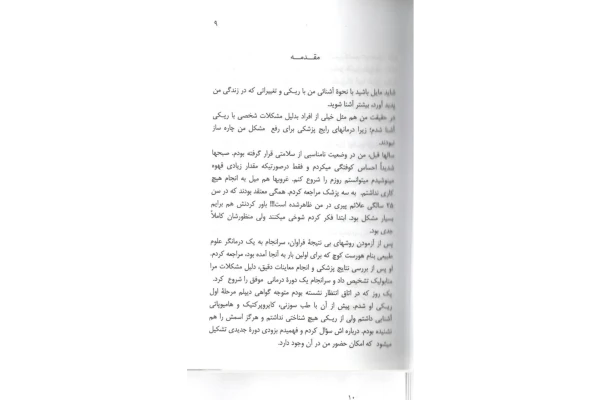 ۹
مقـدمـه
شاید مایل باشید با نحوهٔ آشنائی من با ریـکی و تغییراتی که در زندگی من
پدید آورد، بیشتر آشنا شوید.
در حقیقت من هم مثل خیلی از افراد بدلیل مشکلات شخصی با ریـکی
آشنا شدم؛ زیرا درمانهای رایج پزشکی برای رفع مشکل من چاره ساز
نبودند.
سالها قبل، من در وضعیت نامناسبی از سلامتی قرار گرفته بودم. صبحها
شدیداً احساس کوفتگی میکردم و فقط درصورتیکه مقدار زیادی قهوه
مینوشیدم میتوانستم روزم را شروع کنم. غروبها هم میل به انجام هیچ
کاری نداشتم. به سه پزشک مراجعه کردم. همگی معتقد بودند که در سن
۲۵ سالگی علائم پیری در من ظاهرشده است!!! باور کردنش هم برایم
بسیار مشکل بود. ابتدا فکر کردم شوخی میکنند ولی منظورشان کاملاً
جدی بود.
پس از آزمودن روشهای بی نتیجهٔ فراوان، سرانجام به یک درمانگر علوم
طبیعی بنام هورست کوچ که برای اولین بار به آنجا آمده بود، مراجعه کردم.
او پس از بررسی نتایج پزشکی و انجام معاینات دقیق، دلیل مشکلات مرا
متابولیک تشخیص داد و سرانجام یک دورهٔ درمانی موفق را شروع کرد.
یک روز که در اتاق انتظار نشسته بودم متوجه گواهی دیپلم مرحلهٔ اول
ریکی او شدم. پیش از آن با طب سوزنی، کایروپرکتیک و هامیوپاتی
آشنایی داشتم ولی از ریـکی هیچ شناختی نداشتم و هرگز اسمش را هم
نشنیده بودم. درباره اش سؤال کردم و فهمیدم بزودی دورهٔ جدیدی تشکیل
میشود که امکان حضور من در آن وجود دارد.
۱۰